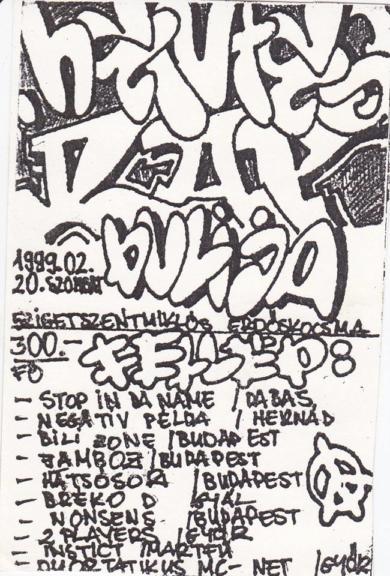 HENTES
RAY
BULiJA
1999.02.
20. SZOMBAT
SZIGETSZENTMIKLÓS ERDŐSKOCSMA
300.-
FŐ
FELLÉP:
- STOP iN DA NAME / DABAS
- NEGATIV PÉLDA / HERNÁD
- BiLi ZONE / BUDAPEST
- / BUDAPEST
- HÁTSÓSOR / BUDAPEST
- BREKO D / GYÁL
- NONSENS / BUDAPEST
- 2 PLAYERS / GYŐR
- INSTICT / MARTFŰ
- MC- NET / GYŐR